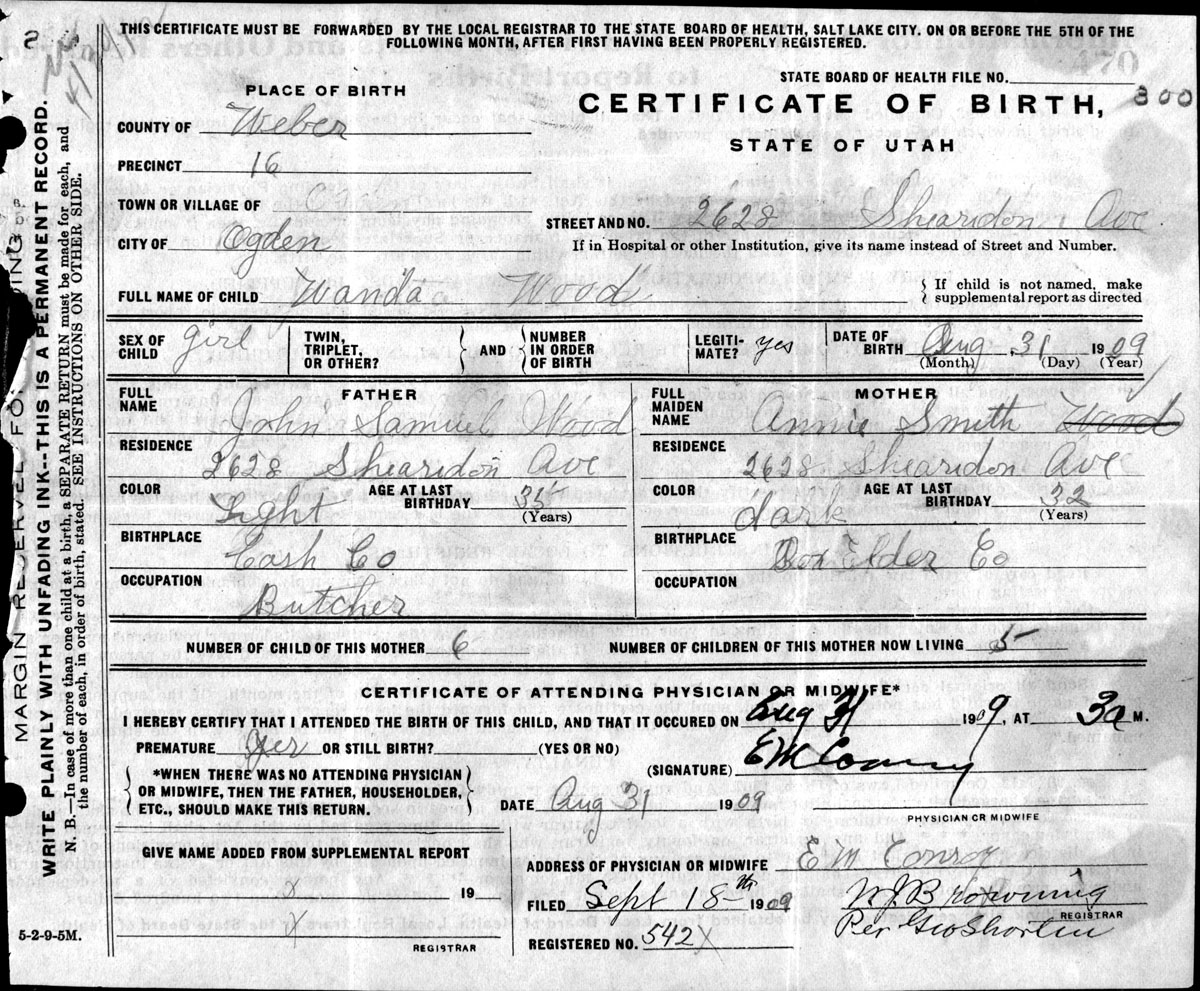 THIS CERTIFICATE MUST BE FORWARDED BY THE LOCAL REGISTRAR TO THE STATE BOARD OF HEALTH, SALT LAKE CITY. ON OR BEFORE THE 5TH OF THE
FOLLOWING MONTH, AFTER FIRST HAVING BEEN PROPERLY REGISTERED.
STATE BOARD OF HEALTH FILE NO.
300
CERTIFICATE OF BIRTH,
STATE OF UTAH
PLACE OF BIRTH
COUNTY OF Weber
PRECINCT 16
TOWN OR VILLAGE OF
CITY OF Ogden
STREET AND NO. 2628 Shearidon Ave
If in Hospital or other Institution, give its name instead of Street and Number.
FULL NAME OF CHILD Wanda Wood
{ If child is not named, make
supplemental report as directed
SEX OF CHILD girl
TWIN, TRIPLET, OR OTHER? } AND { NUMBER IN ORDER OF BIRTH
LEGITIMATE? yes
DATE OF BIRTH Aug 31 1909
(Month) (Day) (Year)
FATHER
FULL NAME John Samuel Wood
RESIDENCE
2628 Shearidon Ave
COLOR Light AGE AT LAST BIRTHDAY 35 (Years)
BIRTHPLACE
Cash Co
OCCUPATION
Butcher
MOTHER
FULL MAIDEN NAME Annie Smith Wood
RESIDENCE
2628 Shearidon Ave
COLOR dark AGE AT LAST BIRTHDAY 32 (Years)
BIRTHPLACE
Box Elder Co
OCCUPATION
NUMBER OF CHILD OF THIS MOTHER 6 NUMBER OF CHILDREN OF THIS MOTHER NOW LIVING 5
CERTIFICATE OF ATTENDING PHYSICIAN OR MIDWIFE*
I HEREBY CERTIFY THAT I ATTENDED THE BIRTH OF THIS CHILD, AND THAT IT OCCURED ON Aug 31 1909, AT 3a M.
PREMATURE OR STILL BIRTH? (YES OR NO)
(SIGNATURE) EM Conroy
{ *WHEN THERE WAS NO ATTENDING PHYSICIAN
OR MIDWIFE, THEN THE FATHER, HOUSEHOLDER,
ETC., SHOULD MAKE THIS RETURN. }
DATE Aug 31 1909
PHYSICIAN OR MIDWIFE
GIVE NAME ADDED FROM SUPPLEMENTAL REPORT
x 19
x
REGISTRAR
ADDRESS OF PHYSICIAN OR MIDWIFE E M Conroy
FILED Sept 18th 1909 W J Browning
REGISTRAR
REGISTERED NO. 542 x Per Geo Shorten
5-2-9-5M.
MARGIN RESERVED FOR BINDING
WRITE PLAINLY WITH UNFADING INK--THIS IS A PERMANENT RECORD.
N. B.—In case of more than one child at a birth, a SEPARATE RETURN must be made for each, and
the number of each, in order of birth, stated. SEE INSTRUCTIONS ON OTHER SIDE.